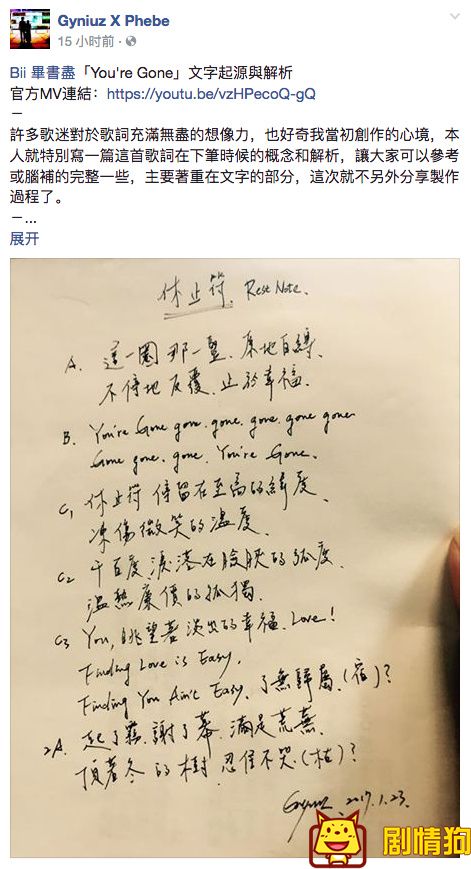 Gyniuz X Phebe
15 小时前
Bii 畢書盡「You're Gone」文字起源與解析
官方MV連結：https://youtu.be/vzHPecoQ-gQ
－
許多歌迷對於歌詞充滿無盡的想像力，也好奇我當初創作的心境，本
人就特別寫一篇這首歌詞在下筆時候的概念和解析，讓大家可以參考
或腦補的完整一些，主要著重在文字的部分，這次就不另外分享製作
過程了。
－...
展开
休止符. Rest Note.
A. 這一圈 那一豎. 原地自縛.
不停地反覆. 止於幸福.
B. You're Gone gone. gone. gone. gone gone
Gone gone. gone. You're Gone.
C1 休止符 停留在至高的緯度.
凍傷微笑的溫度.
C2 千百度 淚港在臉頰的弧度.
溫熱廉價的孤獨.
C3 You, 眺望著淡淡的幸福. Love!
Finding Love is Easy,
Finding You Ain't Easy. 了無歸屬.(宿)?
2A. 起了霧. 謝了幕. 滿是荒蕪.
頂著冬的樹 忍住不哭.(枯)?
Gyniuz. 2017.1.23.
剧情狗